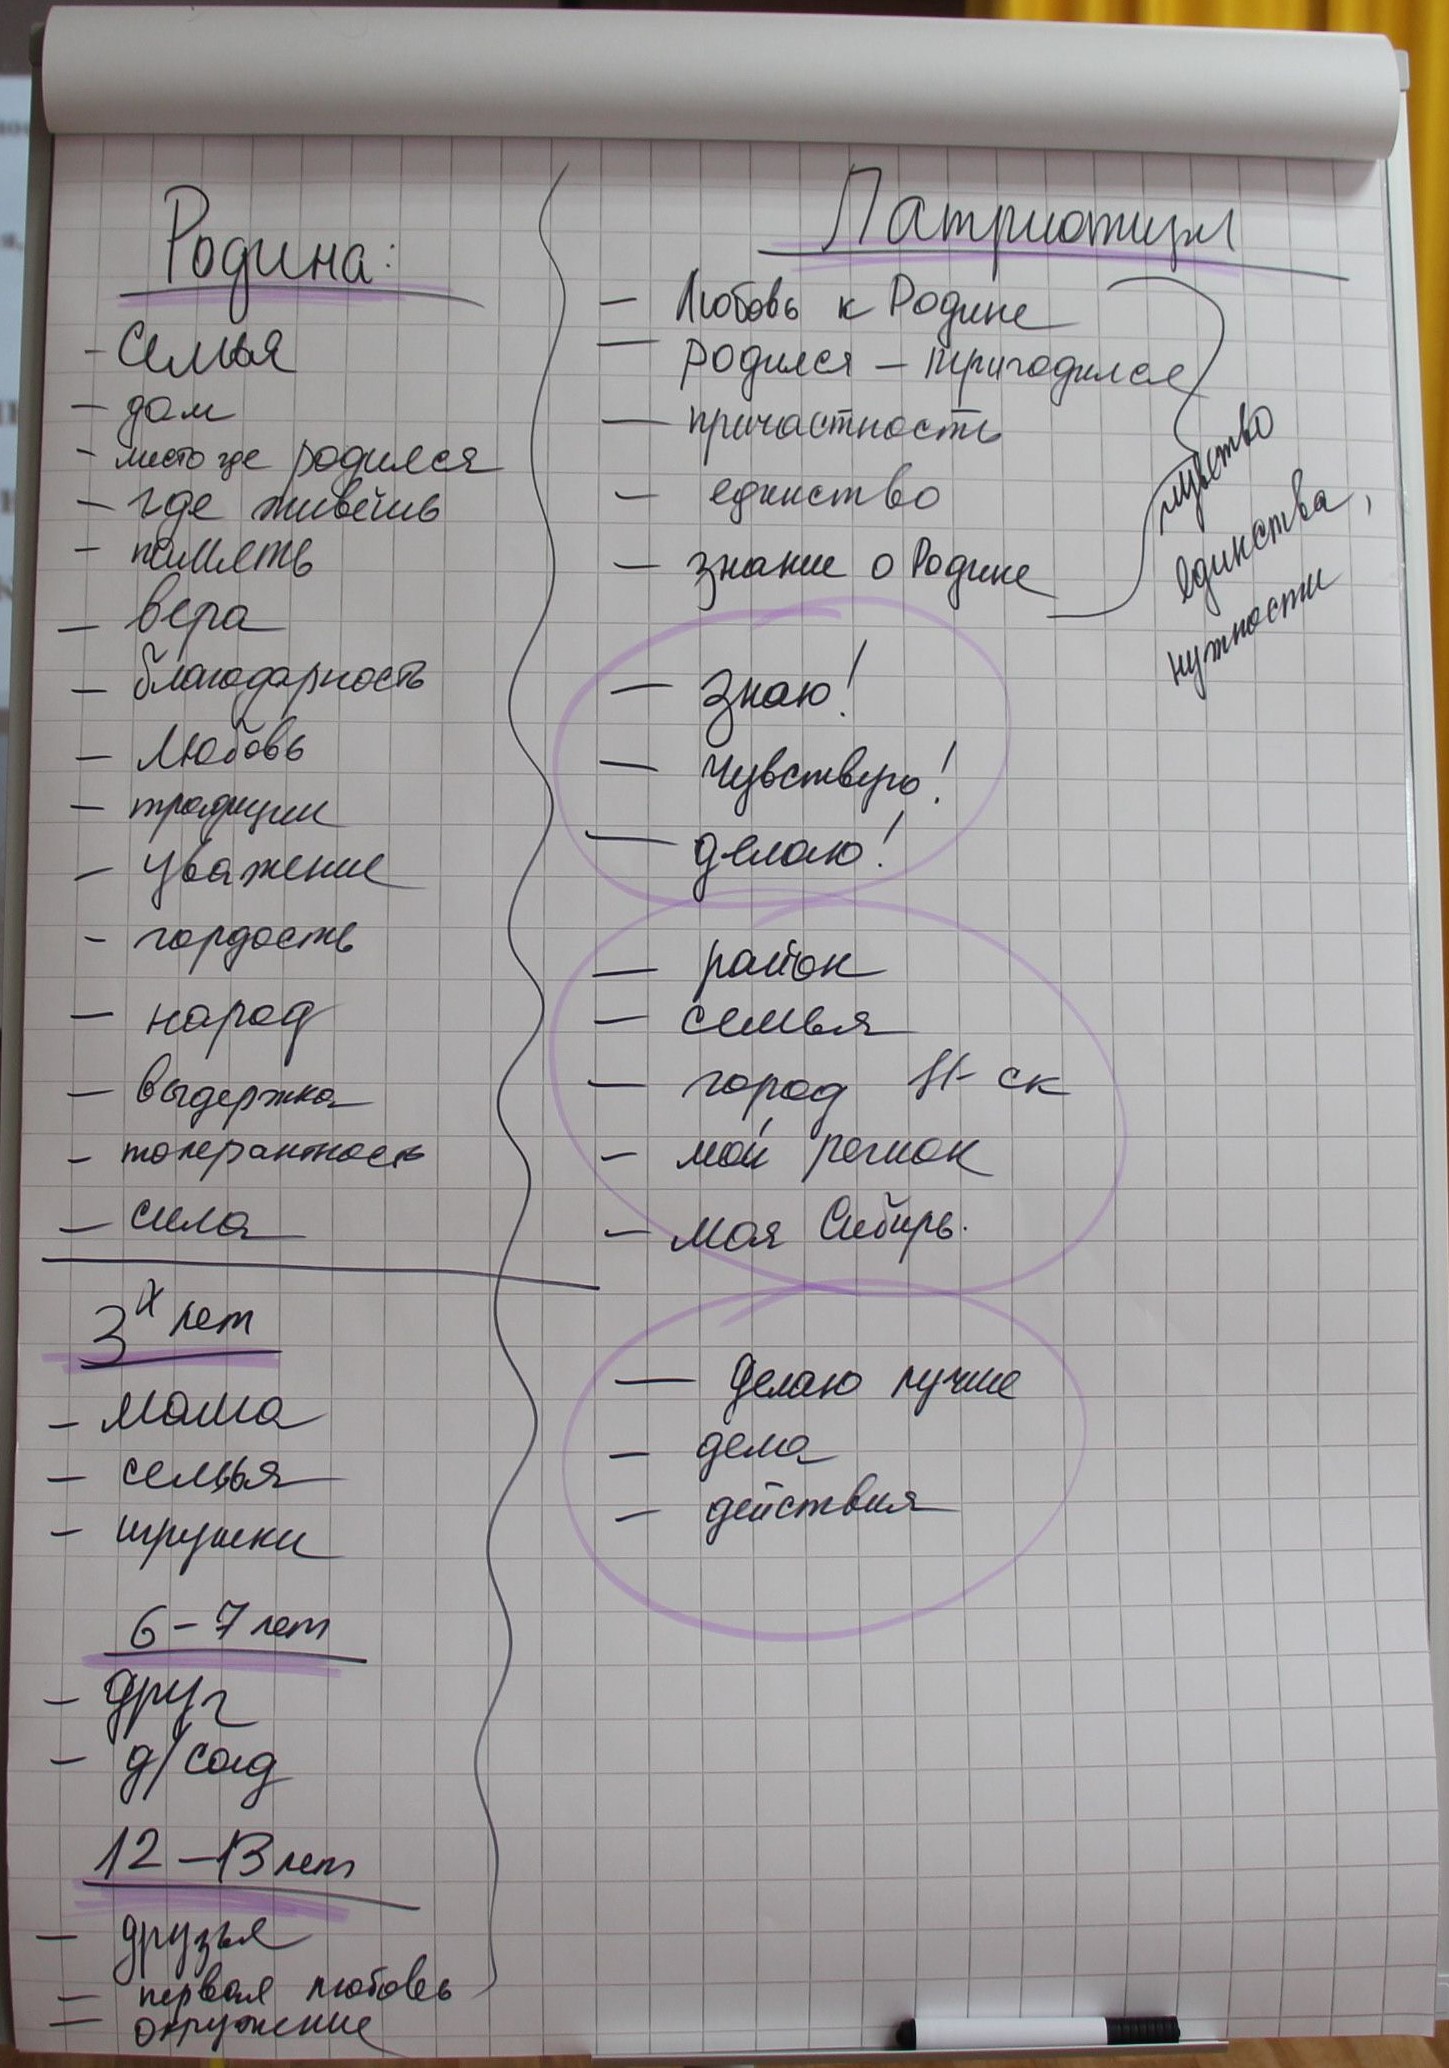 Родина:
- Семья
- дом
- место где родился
- где живёшь
- память
- вера
- благодарность
- Любовь
- традиции
- уважение
- гордость
- народ
- выдержка
- толерантность
- сила
3х лет
- мама
- семья
- игрушки
6-7 лет
- друг
- д/сад
12-13 лет
- друзья
- первая любовь
- окружение
Патриотизм
- Любовь к Родине
- Родился - пригодился
- причастность
- единство
- знание о Родине
чувство
единства,
нужности
- знаю!
- чувствую!
- делаю!
- район
- семья
- город Н-ск
- мой регион
- моя Сибирь.
- делаю лучше
- дела
- действия